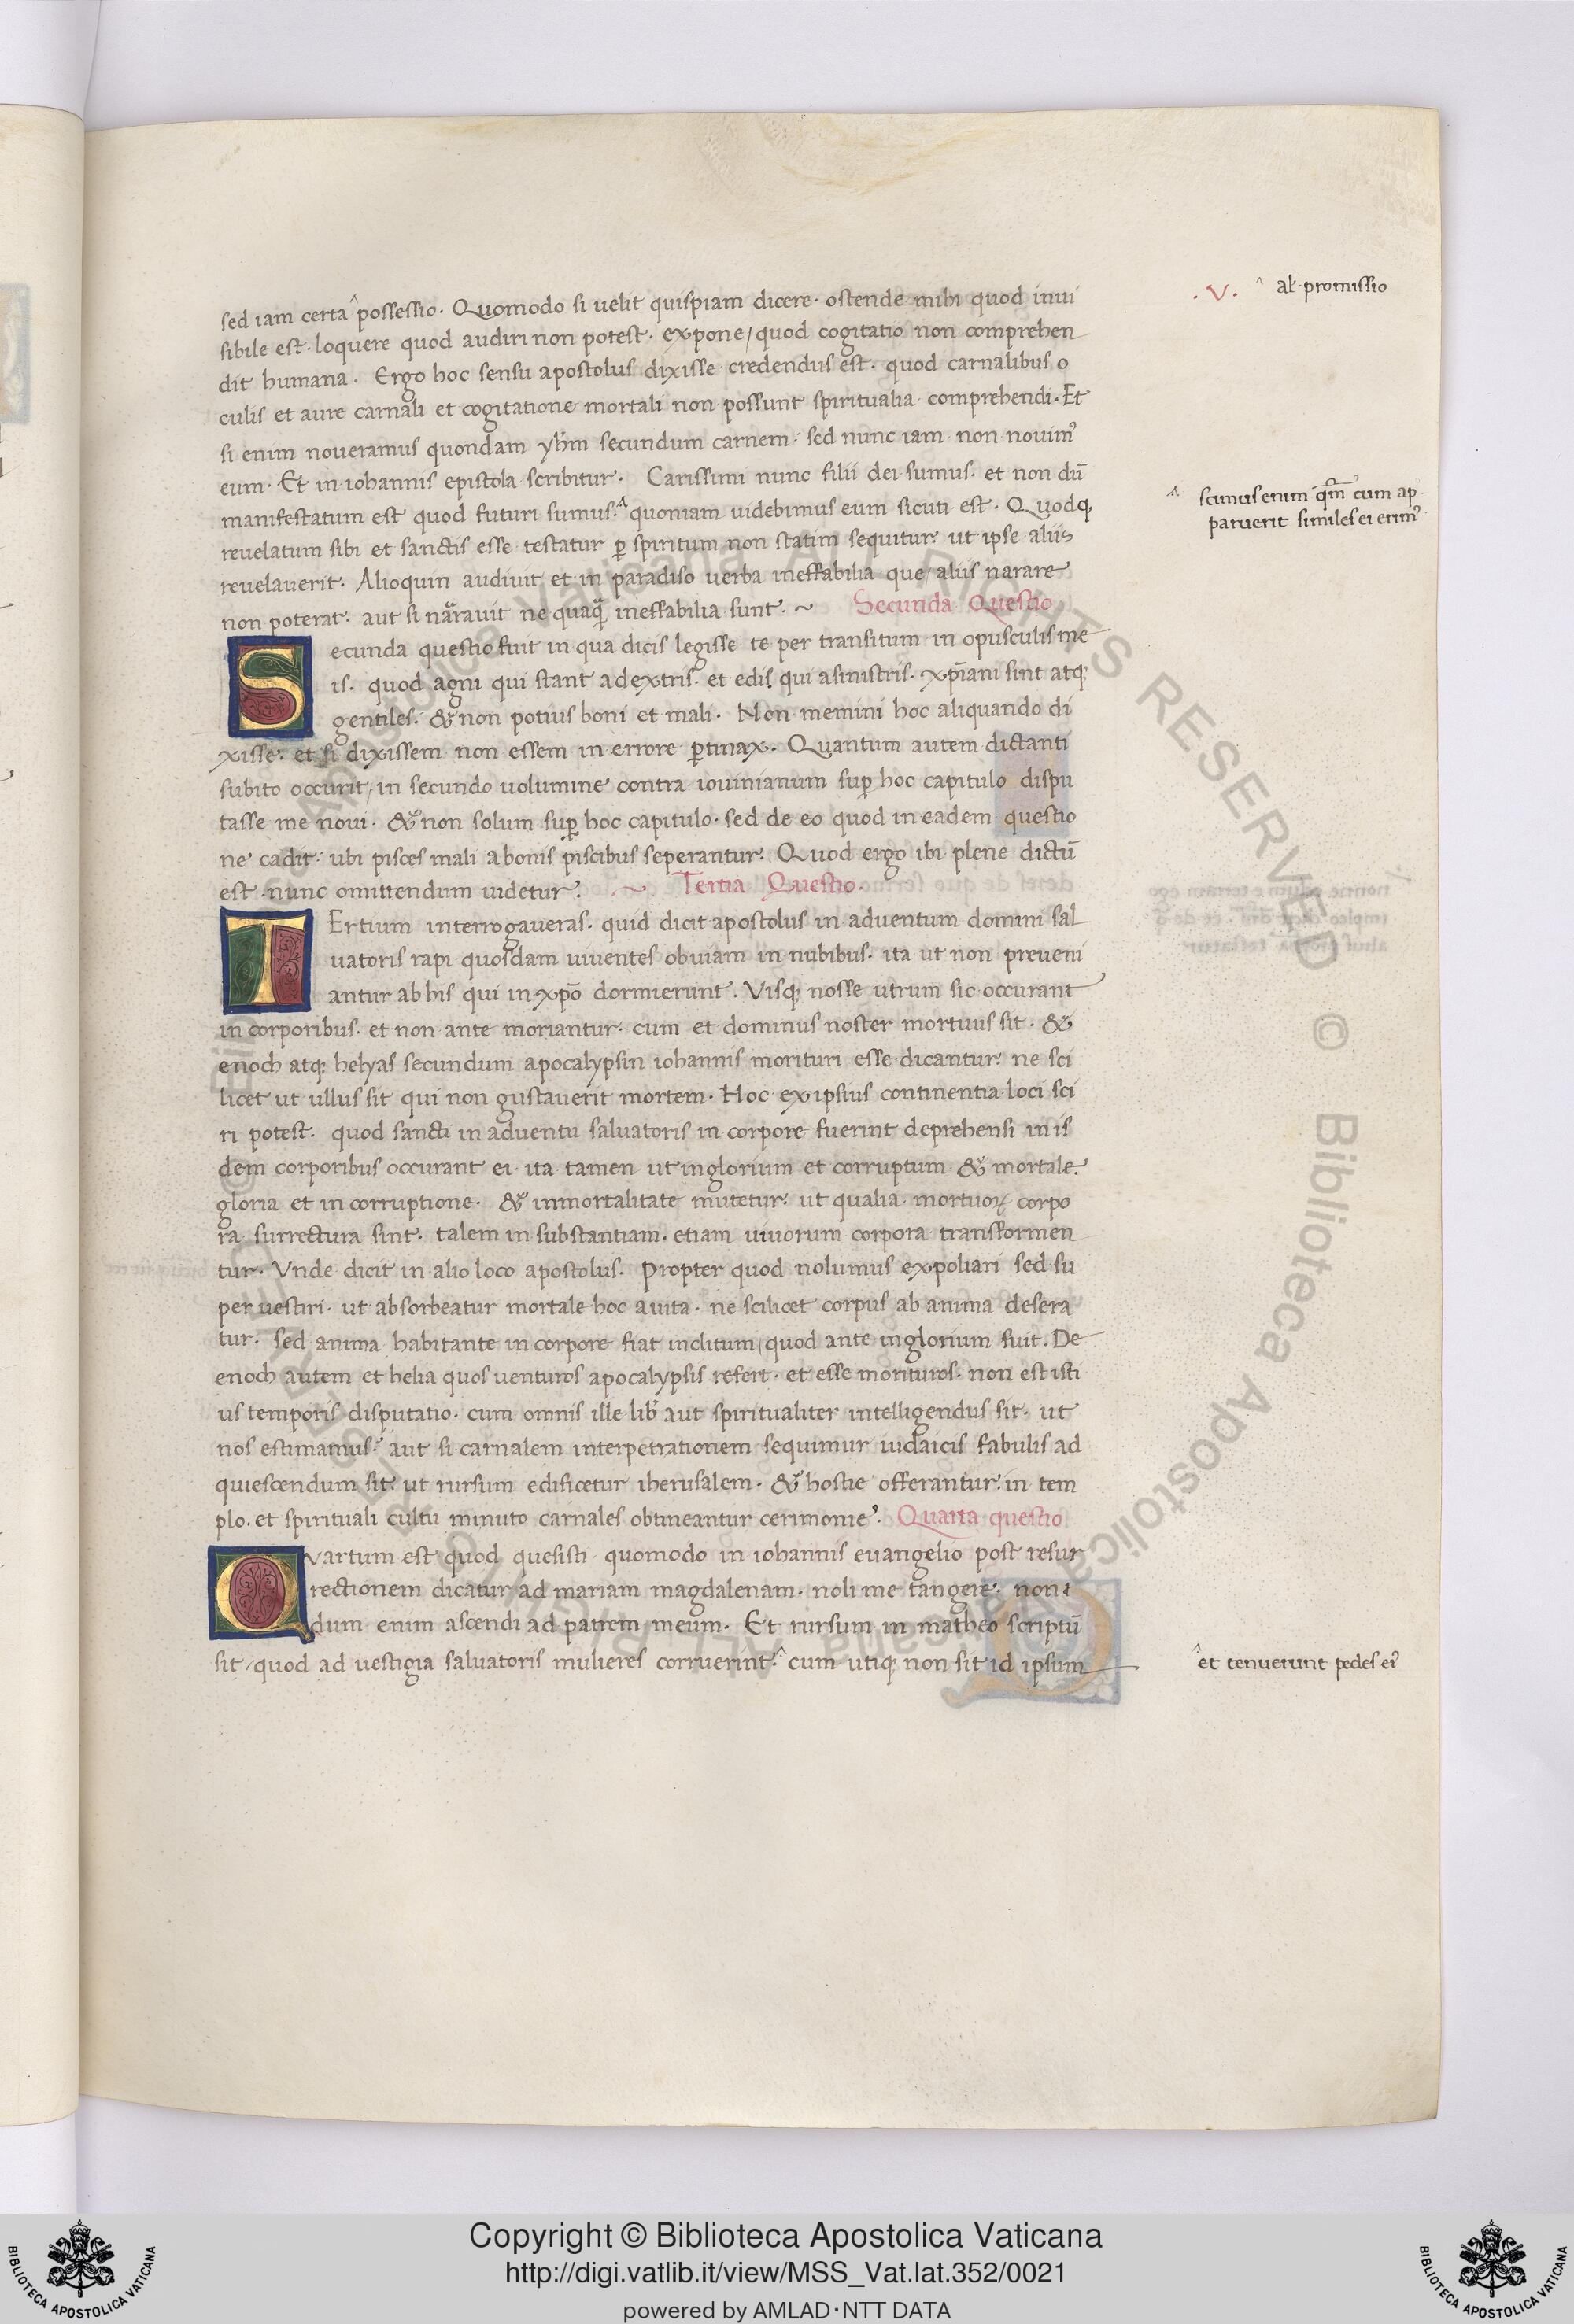 .V. ^ al' promissio
sed iam certa^ possessio. Quomodo si uelit quispiam dicere. ostende mihi quod inui
sibile est. loquere quod audiri non potest. expone/ quod cogitatio non comprehen
dit humana. Ergo hoc sensu apostolus dixisse credendus est. quod carnalibus o
culis et aure carnali et cogitatione mortali non possunt spiritualia comprehendi. Et
si enim noueramus quondam yhm̄ secundum carnem. sed nunc iam non nouimꝰ
eum. Et in iohannis epistola scribitur. Carissimi nunc filii dei sumus. et non dū
manifestatum est quod futuri sumus.^ quoniam uidebimus eum sicuti est. Quodq;
^ scimus enim qm̄ cum ap
paruerit similes ei erimꝰ
reuelatum sibi et sanctis esse testatur ꝑ spiritum non statim sequitur. ut ipse aliis
reuelauerit. Alioquin audiuit et in paradiso uerba ineffabilia que/ aliis narare
non poterat. aut si narauit ne quaq̄ ineffabilia sunt. ~ Secunda Questio
Secunda questio fuit in qua dicis legisse te per transitum in opusculis me
is. quod agni qui stant adextris. et edi qui asinistris. xp̄iani sint atq;
gentiles. & non potius boni et mali. Non memini hoc aliquando di
xisse. et si dixissem non essem in errore ꝑtinax. Quantum autem dictanti
subito occurit/ in secundo uolumine contra iouinianum suꝑ hoc capitulo dispu
tasse me noui. & non solum suꝑ hoc capitulo. sed de eo quod in eadem questio
ne cadit. ubi pisces mali abonis piscibus seperantur. Quod ergo ibi plene dictū
est. nunc omittendum uidetur. ~ Tertia Questio.
TErtium interrogaueras. quid dicit apostolus in aduentum domini sal
uatoris rapi quosdam uiuentes obuiam in nubibus. ita ut non preueni
antur ab his qui in xp̄o dormierunt. Visq; nosse utrum sic occurant
in corporibus. et non ante moriantur. cum et dominus noster mortuus sit. &
enoch atq; helyas secundum apocalypsin iohannis morituri esse dicantur. ne sci
licet ut ullus sit qui non gustauerit mortem. Hoc ex ipsius continentia loci sci
ri potest. quod sancti in aduentu saluatoris in corpore fuerint deprehensi in is
dem corporibus occurant ei. ita tamen ut inglorium et corruptum & mortale.
gloria et in corruptione. & inmortalitate mutetur. ut qualia mortuoꝝ corpo
ra surrectura sint. talem in substantiam. etiam uiuorum corpora transformen
tur. Vnde dicit in alio loco apostolus. Propter quod nolumus expoliari sed su
per uestiri. ut absorbeatur mortale hoc auita. ne scilicet corpus ab anima desera
tur. sed anima habitante in corpore fiat inclitum/ quod ante inglorium fuit. De
enoch autem et helia quos uenturos apocalypsis refert. et esse morituros. non est isti
us temporis disputatio. cum omnis ille lib' aut spiritualiter intelligendus sit. ut
nos estimamus. aut si carnalem interpetrationem sequimur iudaicis fabulis ad
quiescendum sit. ut rursum edificetur iherusalem. & hostie offerantur. in tem
plo. et spirituali cultu minuto carnales obtineantur cerimonie. Quarta questio
Qvartum est quod quesisti quomodo in iohannis euangelio post resur
rectionem dicatur ad mariam magdalenam. noli me tangere. non
dum enim ascendi ad patrem meum. Et rursum in matheo scriptū
sit/ quod ad uestigia saluatoris mulieres corruerint.^ cum utiq; non sit id ipsum
^ et tenuerunt pedes eiꝰ
© Biblioteca Apostolica Vaticana ALL RIGHTS RESERVED
Copyright © Biblioteca Apostolica Vaticana
http://digi.vatlib.it/view/MSS_Vat.lat.352/0021
powered by AMLAD·NTT DATA
BIBLIOTECA APOSTOLICA VATICANA
BIBLIOTECA APOSTOLICA VATICANA